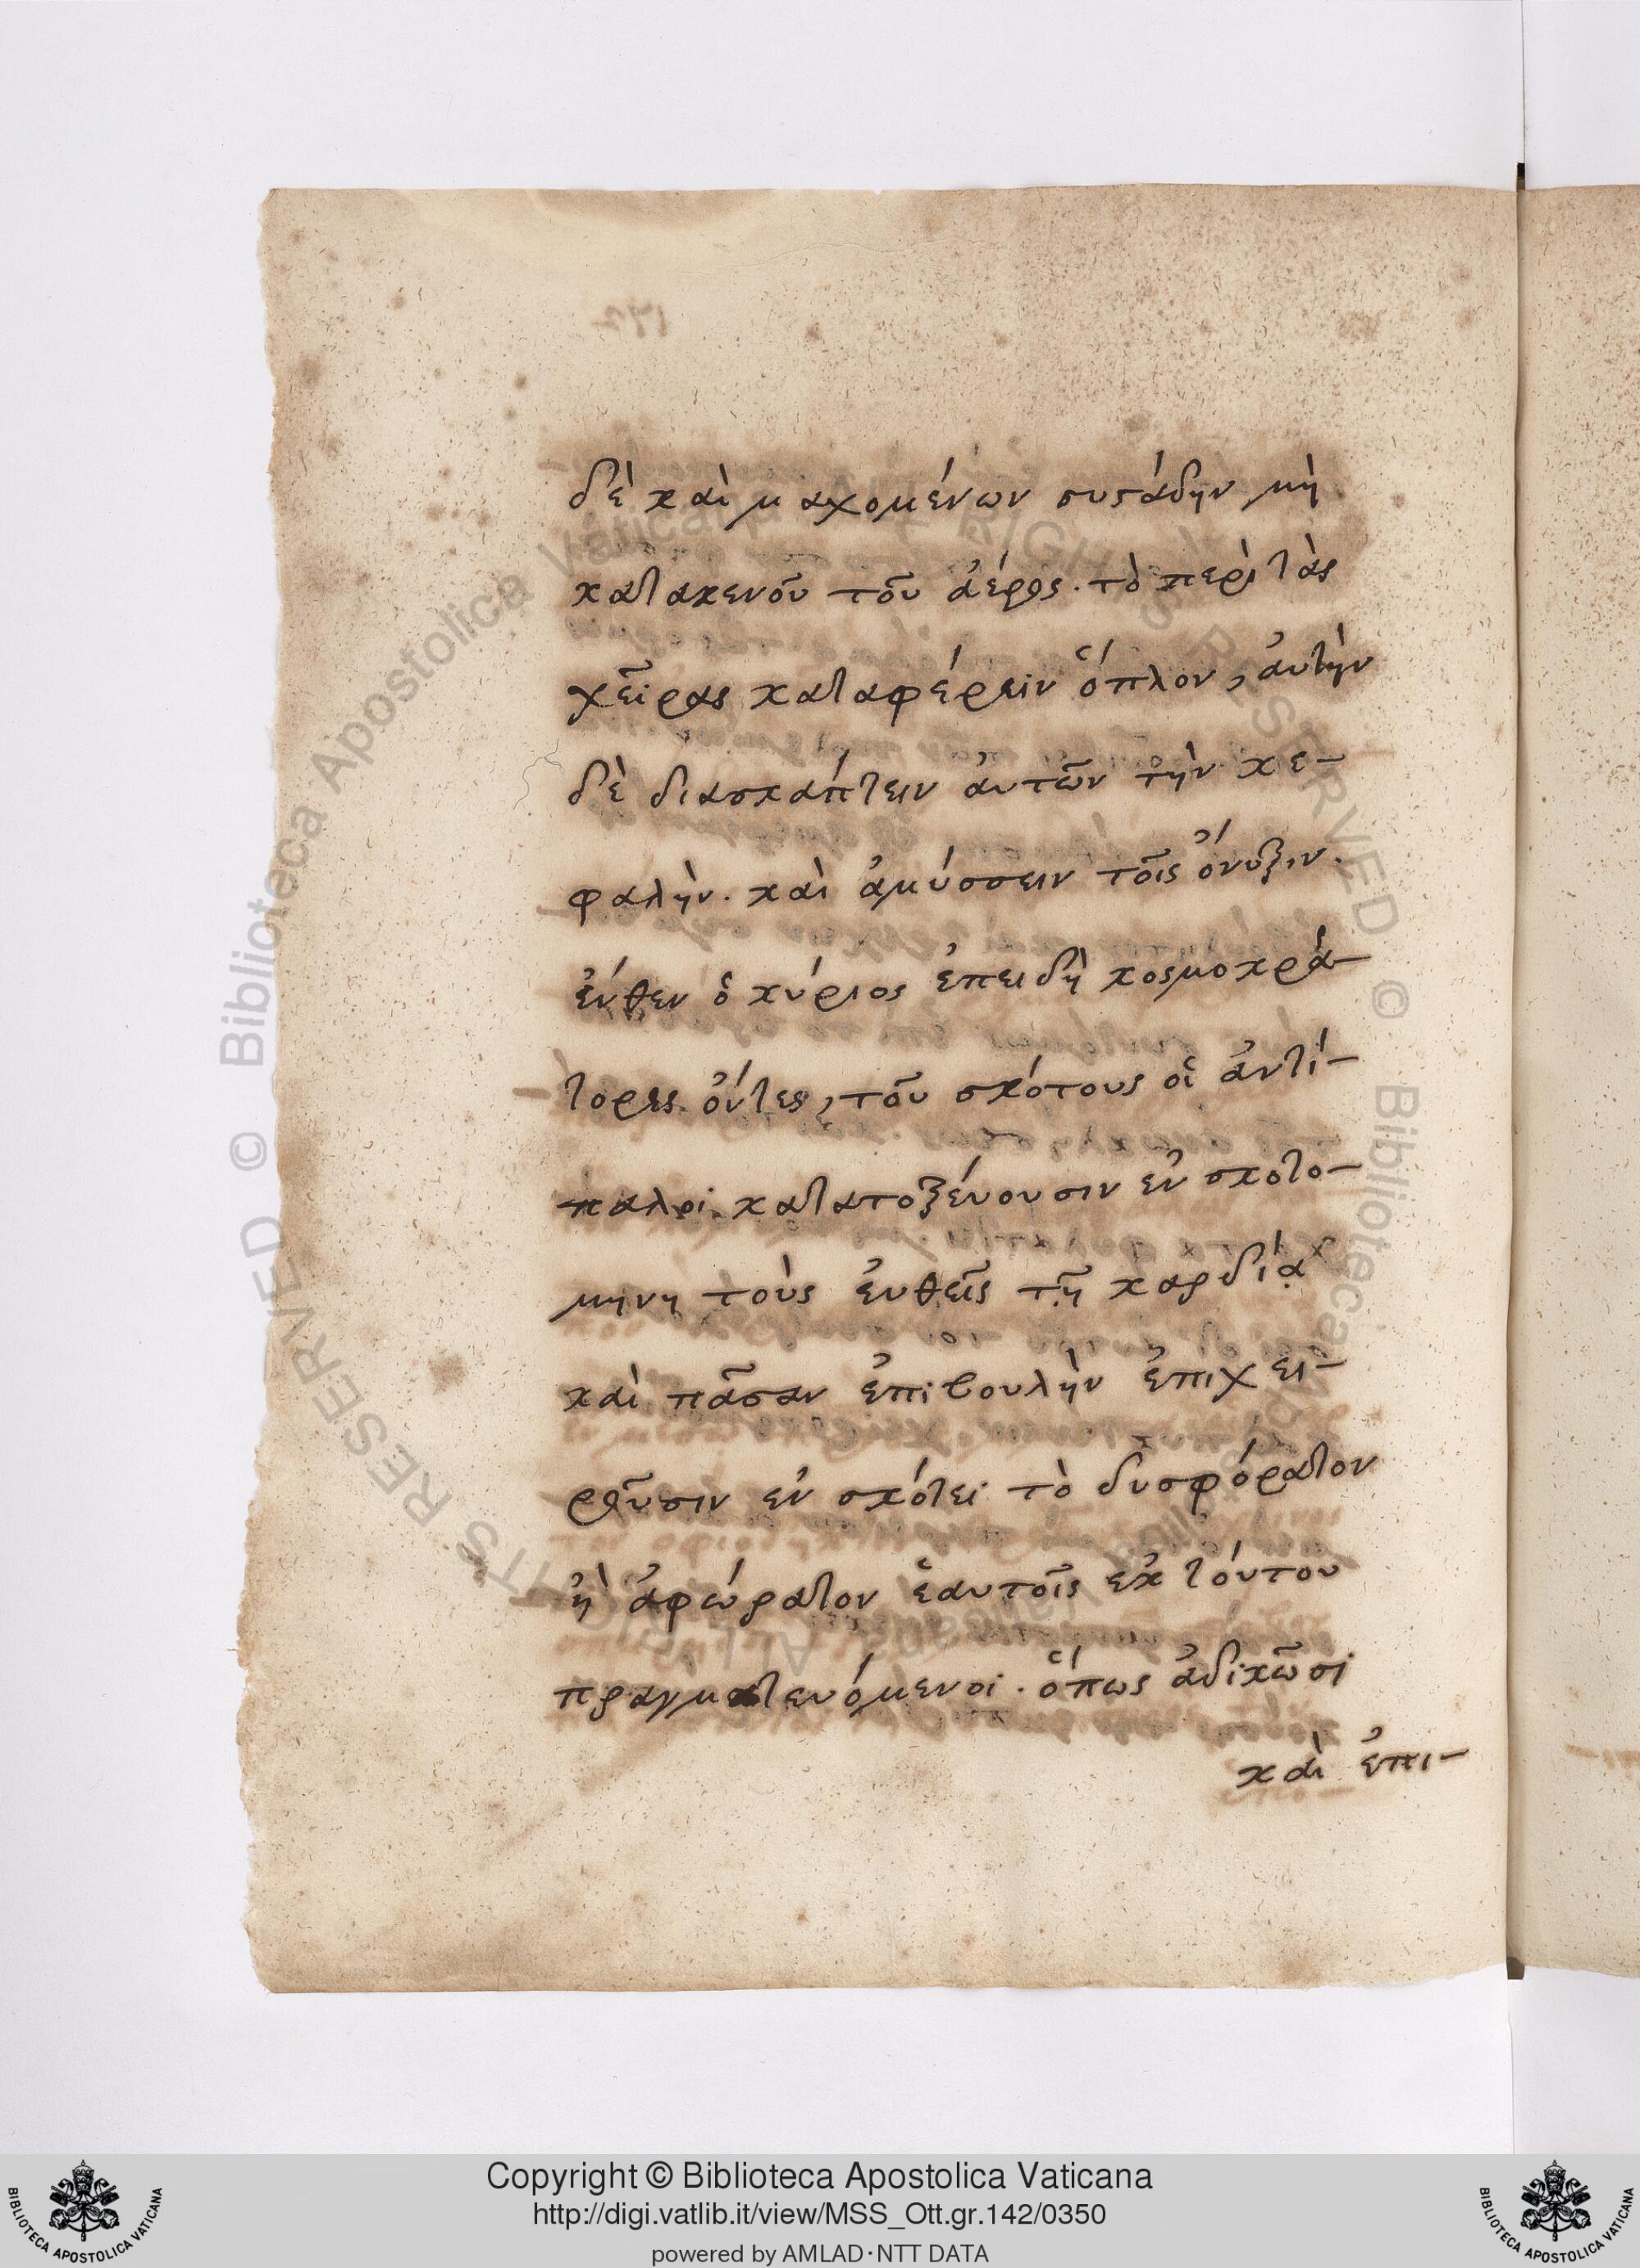 δὲ καὶ μαχομένων συστάδην μὴ
κατακενοῦ τοῦ ἀέρος. τὸ περὶ τὰς
χεῖρας καταφέρειν ὅπλον, ἀυτὴν
δὲ διασκάπτειν ἀυτῶν τὴν κε-
φαλὴν. καὶ ἀμύσσειν τοῖς ὄνυξιν.
ἔνθεν ὁ κύριος ἐπειδὴ κοσμοκρά-
τορες ὄντες, τοῦ σκότους οἱ ἀντί-
παλοι κατατοξέυουσιν ἐν σκοτο-
μηνη τοὺς ἐυθεῖς τῇ καρδίᾳ
καὶ πᾶσαν ἐπιβουλὴν ἐπιχει-
ροῦσιν ἐν σκότει τὸ δυσφόρατον
ἢ ἀφώρατον ἑαυτοῖς ἐκ τούτου
πραγματευόμενοι. ὅπως ἀδικῶσι
καὶ ἐπι-
Copyright © Biblioteca Apostolica Vaticana
http://digi.vatlib.it/view/MSS_Ott.gr.142/0350
powered by AMLAD·NTT DATA
BIBLIOTECA APOSTOLICA VATICANA
BIBLIOTECA APOSTOLICA VATICANA